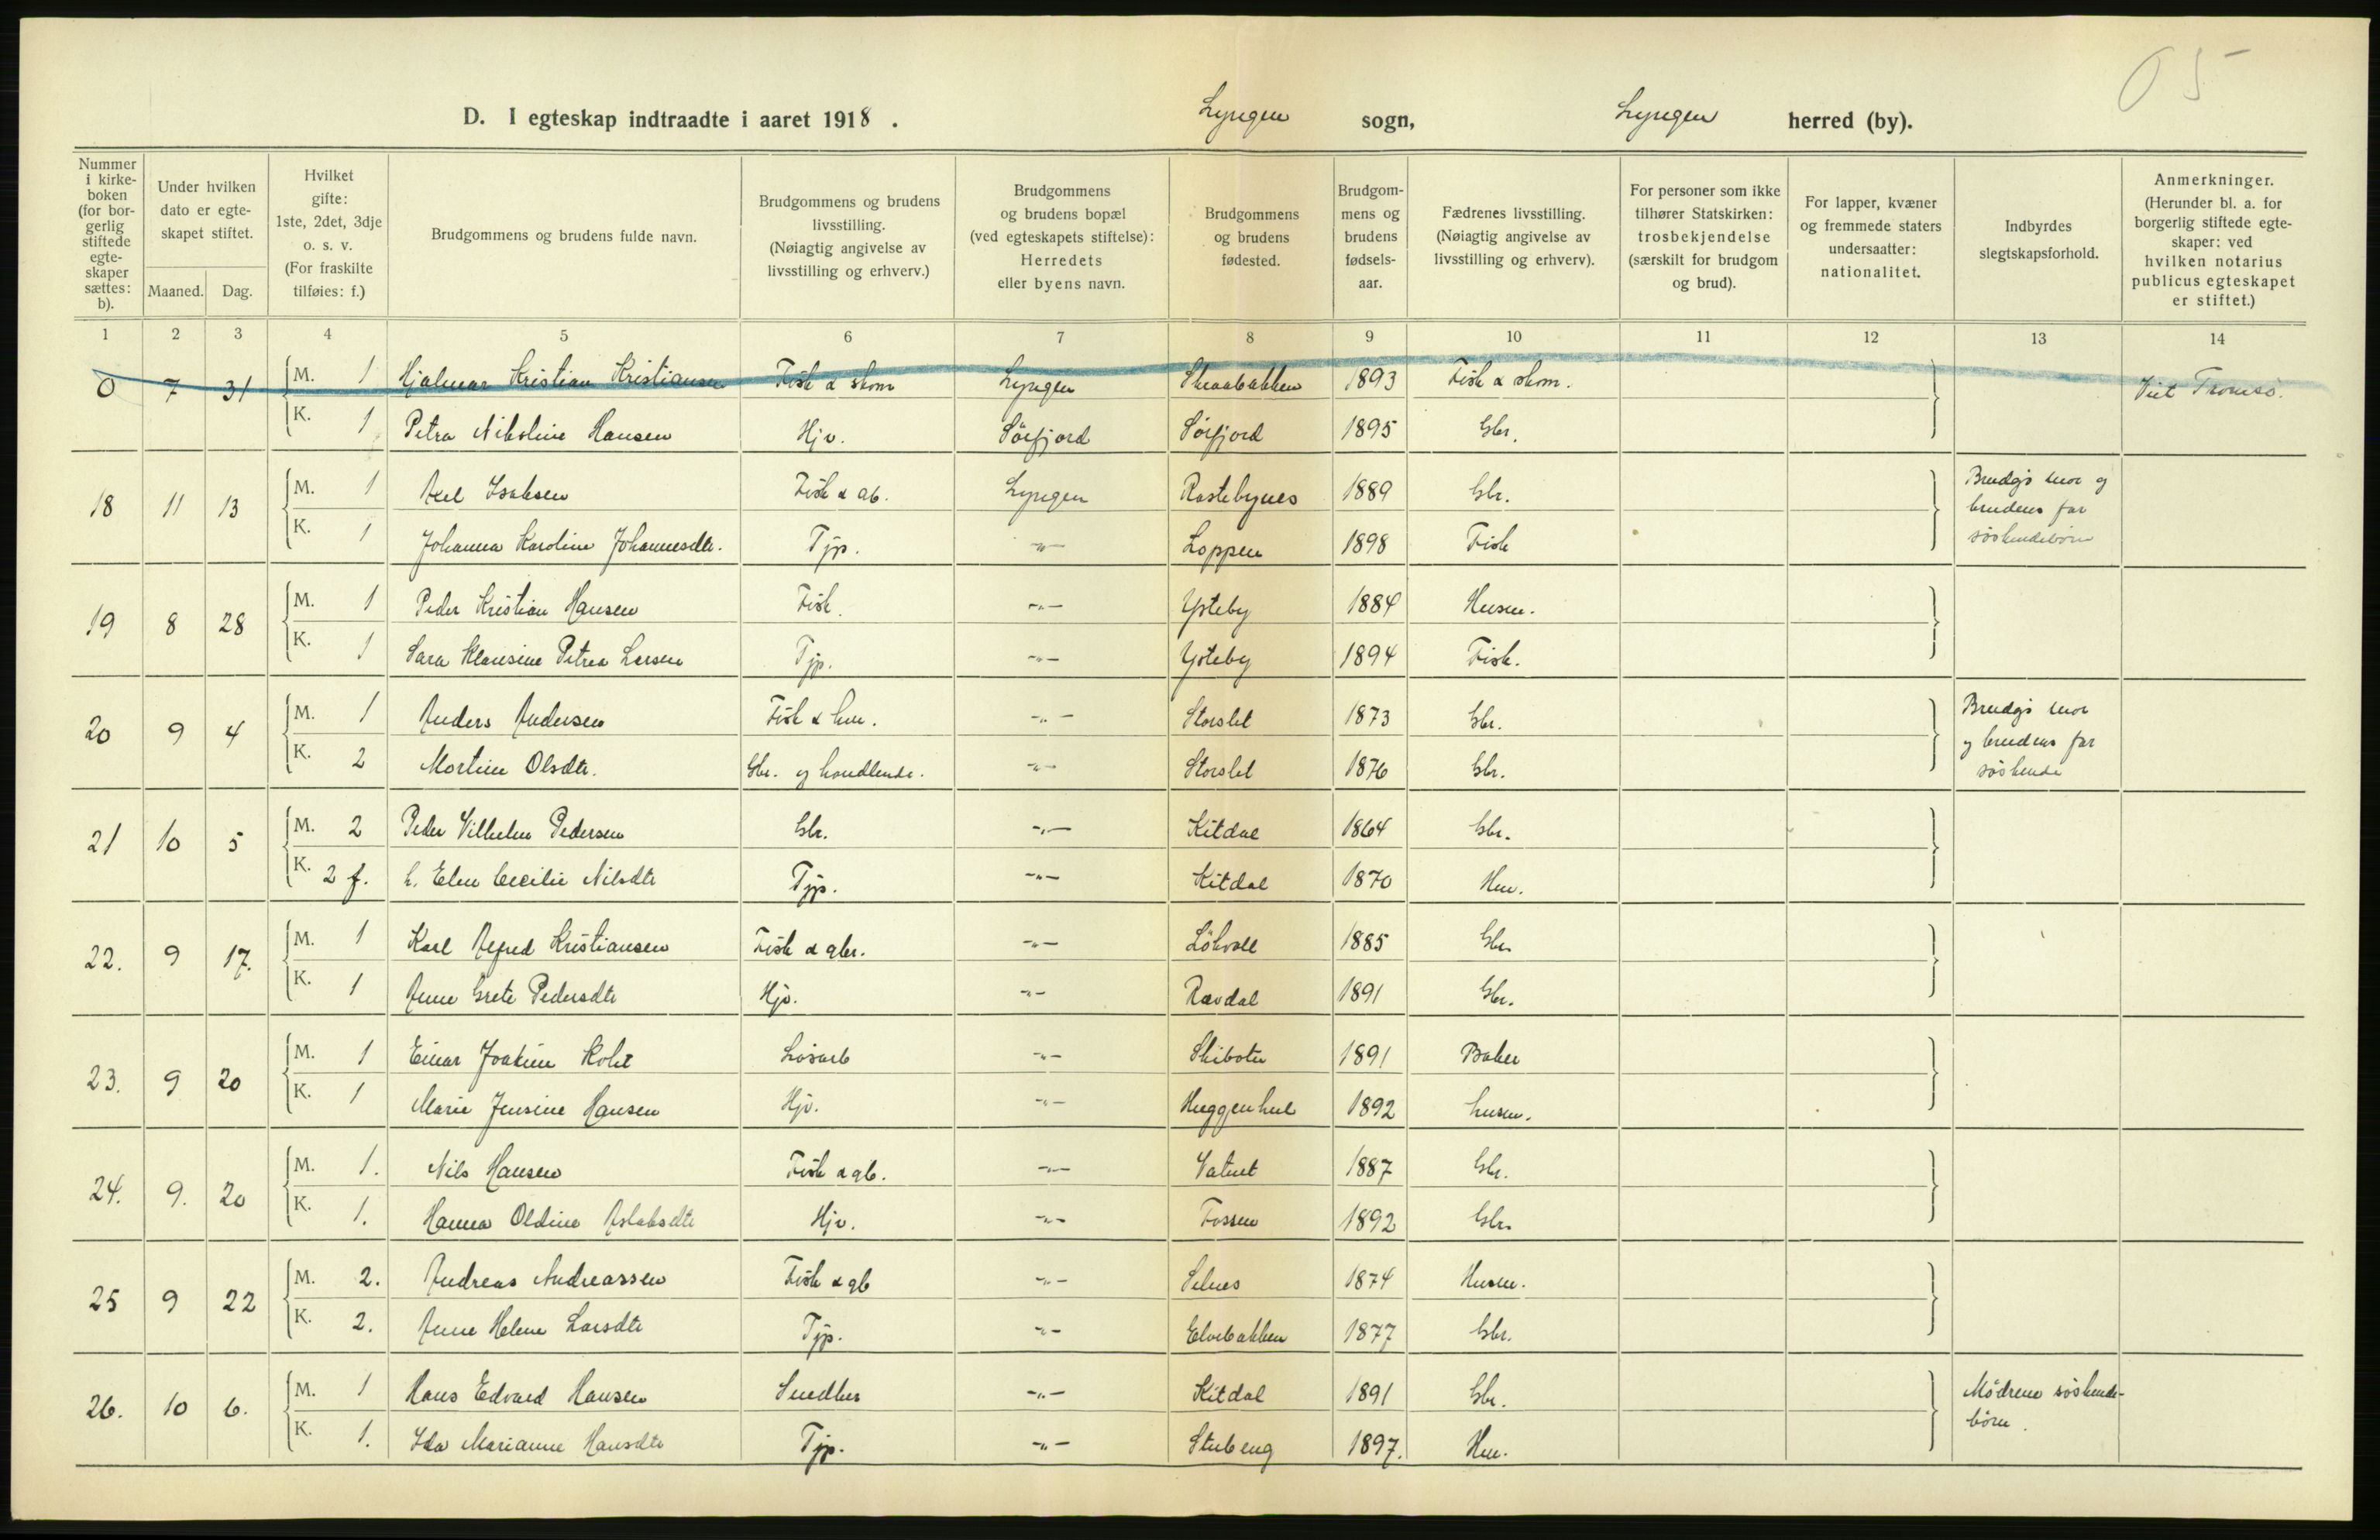 05
D. I egteskap indtraadte i aaret 1918. Lyngen sogn, Lyngen herred (by).
Nummer i kirke-boken (for bor-gerlig stiftede egte-skaper sættes: b).
Under hvilken dato er egte-skapet stiftet.
Maaned. Dag.
Hvilket gifte: 1ste, 2det, 3dje o. s. v. (For fraskilte tilføies: f.)
Brudgommens og brudens fulde navn.
Brudgommens og brudens livsstilling. (Nøiagtig angivelse av livsstilling og erhverv.)
Brudgommens og brudens bopæl (ved egteskapets stiftelse): Herredets eller byens navn.
Brudgommens og brudens fødested.
Brudgom-mens og brudens fødsels-aar.
Fædrenes livsstilling. (Nøiagtig angivelse av livsstilling og erhverv).
For personer som ikke tilhører Statskirken: trosbekjendelse (særskilt for brudgom og brud).
For lapper, kvæner og fremmede staters undersaatter: nationalitet.
Indbyrdes slegtskapsforhold.
Anmerkninger. (Herunder bl. a. for borgerlig stiftede egte-skaper: ved hvilken notarius publicus egteskapet er stiftet.)
1 2 3 4 5 6 7 8 9 10 11 12 13 14
0 7 31 M. 1 Hjalmar Kristian Kristiansen Fisk & skom Lyngen Skaabakken 1893 Fisk & skom. Viet Tromsö.
K. 1 Petra Nikoline Hansen Hjv. Sörfjord Sörfjord 1895 Gbr.
18 11 13 M. 1 Axel Isaksen Fisk & gb. Lyngen Rastebynes 1889 Gbr. Brudgs mor og
brudens far
söskendebörn
K. 1 Johanna Karoline Johannesdtr. Tjp. -"- Loppen 1898 Fisk
19 8 28 M. 1 Peder Kristian Hansen Fisk. -"- Ysteby 1884 Husm.
K. 1 Sara Klausine Petrea Larsen Tjp. -"- Ysteby 1894 Fisk.
20 9 4 M. 1 Anders Andersen Fisk & hm. -"- Storslet 1873 Gbr. Brudgs mor
og brudens far
söskende
K. 2 Martine Olsdtr. Gbr. og handlende. -"- Storslet 1876 Gbr.
21 10 5 M. 2 Peder Vilhelm Pedersen Gbr. -"- Kitdal 1864 Gbr.
K. 2 f. h. Elen Cecilie Nilsdtr -"- Tjp. Kitdal 1870 Hm.
22. 9 17. M. 1 Karl Alfred Kristiansen Fisk & gbr. -"- Lökvoll 1885 Gbr
K. 1 Anne Grete Pedersdtr Hjv. -"- Rovdal 1891 Gbr.
23. 9 20 M. 1 Einar Joakim Koht Lösarb -"- Skibotn 1891 Baker
K. 1 Marie Jensine Hansen Hjv. -"- 1892 husm.
24. 9. 20 M. 1. Nils Hansen Fisk & gb. -"- Vatnet 1887 Gbr.
K. 1. Hanna Oldine Aslaksdtr Hjv. -"- Fossen 1892 Gbr
25 9 22 M. 2. Andreas Andreassen Fisk & gb -"- Selnes 1874 Husm.
K. 2. Anne Helene Larsdtr Tjp. -"- Elvebakken 1877 Gbr.
26. 10 6. M. 1 Hans Edvard Hansen Snedker -"- Kitdal 1891 Gbr. Mödrene söskende-
börn.
K. 1. Ida Marianne Hansdtr Tjp. -"- Stubeng 1897. Hm.